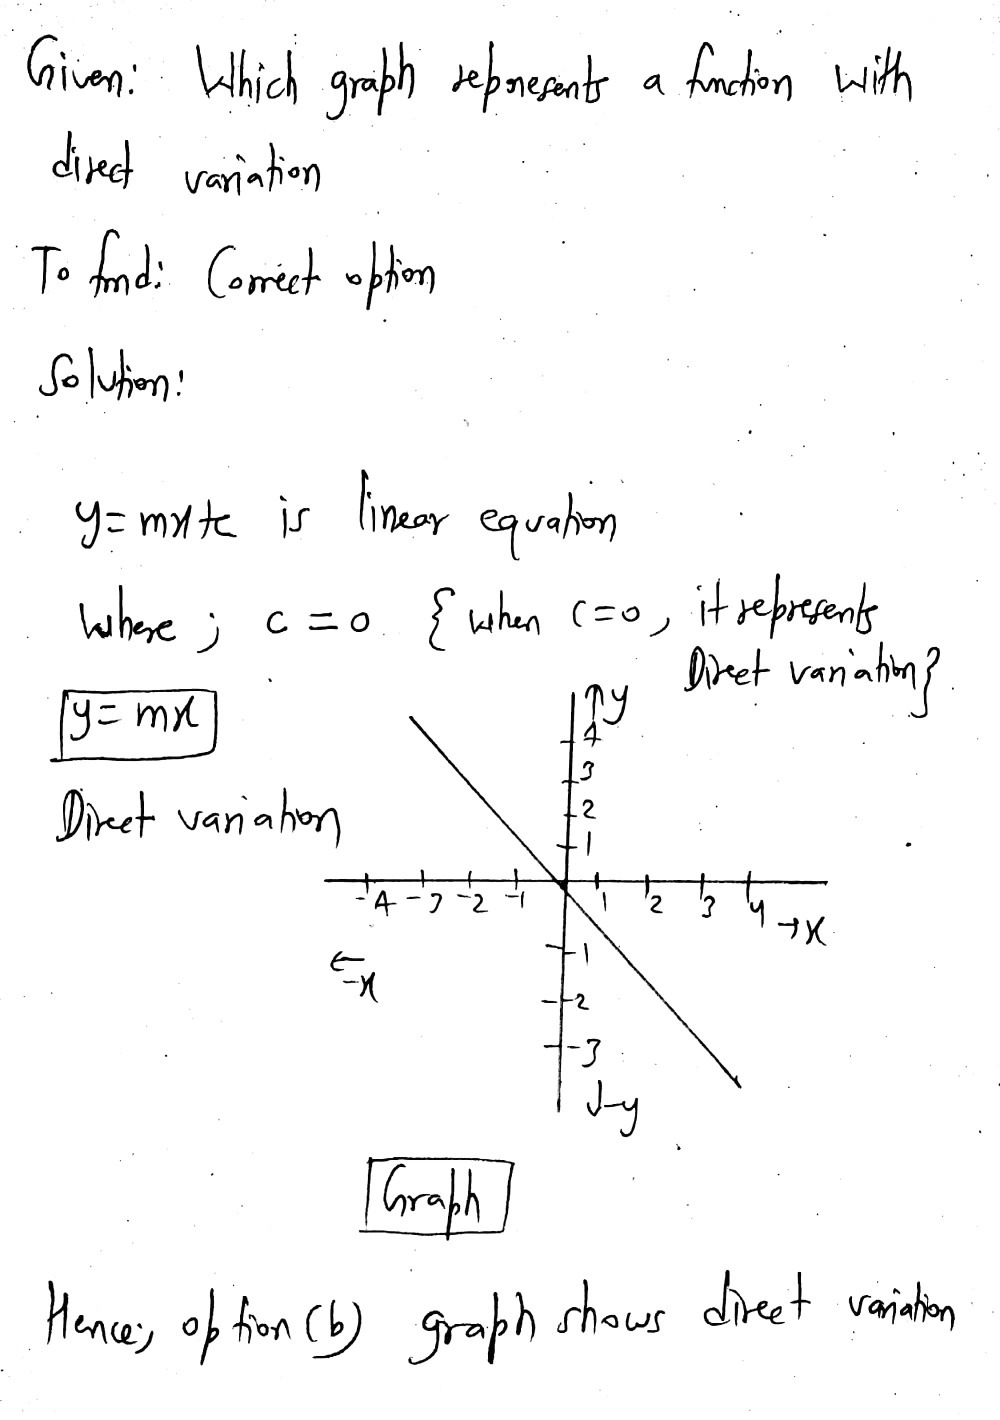 Given: Which graph represents a function with
direct variation
To find: Correct option
Solution:
y=mx+c is linear equation
where ; c=0 {when c=0, it represents
Direct variation}
y=mx
Direct variation
↑y
4
3
2
1
-4 -3 -2 -1 1 2 3 4 →x
←-x
-1
-2
-3
↓-y
Graph
Hence; option (b) graph shows direct variation